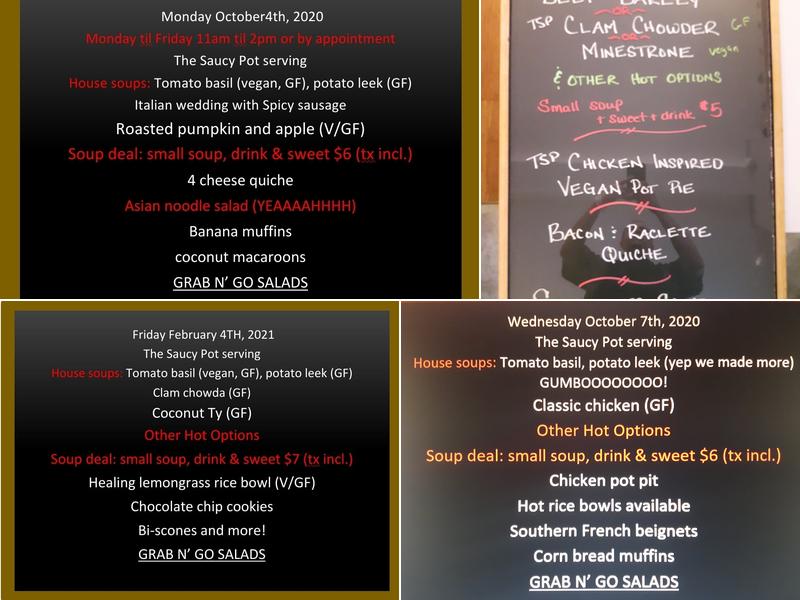 Monday October4th, 2020
Monday til Friday 11am til 2pm or by appointment
The Saucy Pot serving
House soups: Tomato basil (vegan, GF), potato leek (GF)
Italian wedding with Spicy sausage
Roasted pumpkin and apple (V/GF)
Soup deal: small soup, drink & sweet $6 (tx incl.)
4 cheese quiche
Asian noodle salad (YEAAAAHHHH)
Banana muffins
coconut macaroons
GRAB N’ GO SALADS
BEEF BARLEY
~OR~
TSP CLAM CHOWDER GF
~OR~
MINESTRONE vegan
& OTHER HOT OPTIONS
Small soup
+ Sweet + drink $5
TSP CHICKEN INSPIRED
VEGAN POT PIE
BACON & RACLETTE
QUICHE
Friday February 4TH, 2021
The Saucy Pot serving
House soups: Tomato basil (vegan, GF), potato leek (GF)
Clam chowda (GF)
Coconut Ty (GF)
Other Hot Options
Soup deal: small soup, drink & sweet $7 (tx incl.)
Healing lemongrass rice bowl (V/GF)
Chocolate chip cookies
Bi-scones and more!
GRAB N’ GO SALADS
Wednesday October 7th, 2020
The Saucy Pot serving
House soups: Tomato basil, potato leek (yep we made more)
GUMBOOOOOOOO!
Classic chicken (GF)
Other Hot Options
Soup deal: small soup, drink & sweet $6 (tx incl.)
Chicken pot pit
Hot rice bowls available
Southern French beignets
Corn bread muffins
GRAB N’ GO SALADS